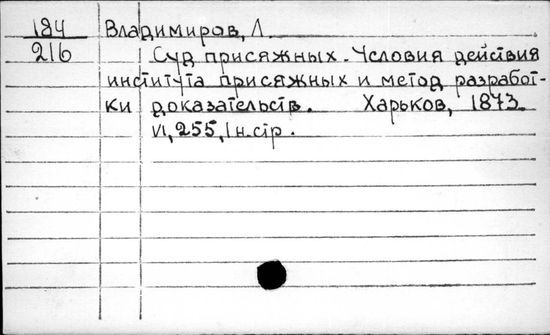 184
216
Владимиров, Л.
Суд присяжных. Условия действия
института присяжных и метод разработ-
ки доказательств. Харьков, 1873.
VI, 255, 1 н.стр.